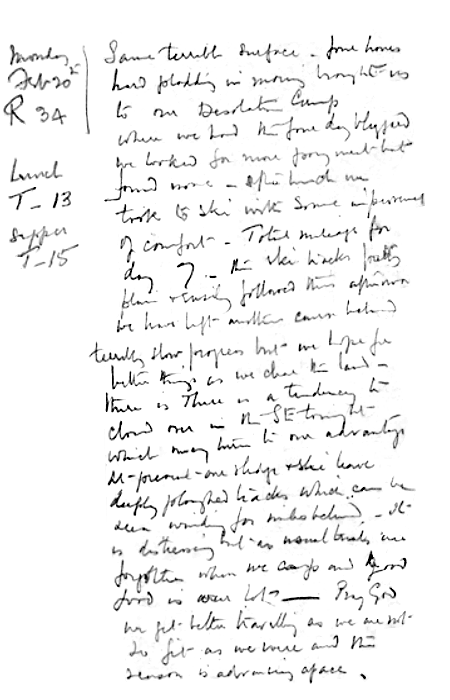 Monday
Feb 20th
R 34
Lunch
T - 13
Supper
T - 15
Same terrible surface - four hours
hard plodding in morning brought us
to our Desolation Camp
where we had the four day blizzard
we looked for more pony meat but
found none - After lunch we
took to ski with some improvement
of comfort - Total mileage for
day 7 - the ski tracks pretty
plain & easily followed this afternoon
we have left another cairn behind
terribly slow progress but we hope for
better things as we clear the land -
there is There is a tendency to
cloud over in the SE tonight
which may turn to our advantage
At present our sledge & ski leave
deeply ploughed tracks which can be
seen winding for miles behind - It
is distressing but as usual trials are
forgotten when we camp and good
food is our lot - Pray God
we get better travelling as we are not
so fit as we were and the
season is advancing apace.